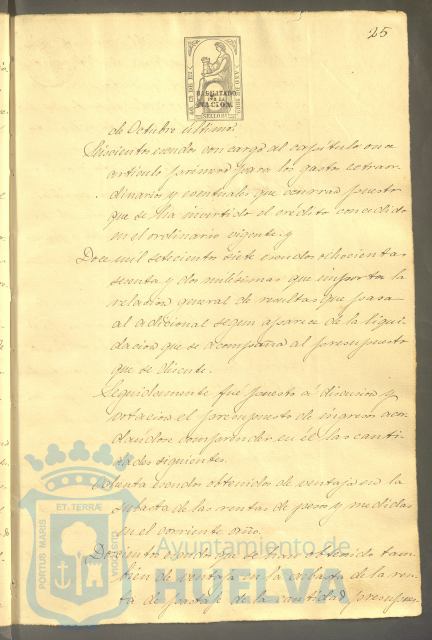 25
HABILITADO
POR LA
NACION
de Octubre ultimo.
Seiscientos escudos con cargo al capítulo once
articulo primero para los gastos estraor-
dinarios y eventuales que ocurran puesto
que se ha invertido el crédito concedido
en el ordinario vigente. y
Doce mil setecientos siete escudos ochocientas
sesenta y dos milésimas que importa la
relacion general de resultas que pasa
al adicional segun aparece de la liqui-
dacion que se acompaña al presupuesto
que se discute.
Seguidamente fué puesto á discusion y
votacion el presupuesto de ingresos acor-
dandose comprender en él las canti-
dades siguientes.
escudos obtenidos de ventaja en la
subasta de las rentas de peso y medidas
en el corriente año.
Doscientos escudos que se han obtenido tam-
bien de ventaja en la subasta de la ren-
ta de de la cantidad presupues
PORTUS MARIS ET TERRÆ CUSTODIA
Ayuntamiento de
HUELVA